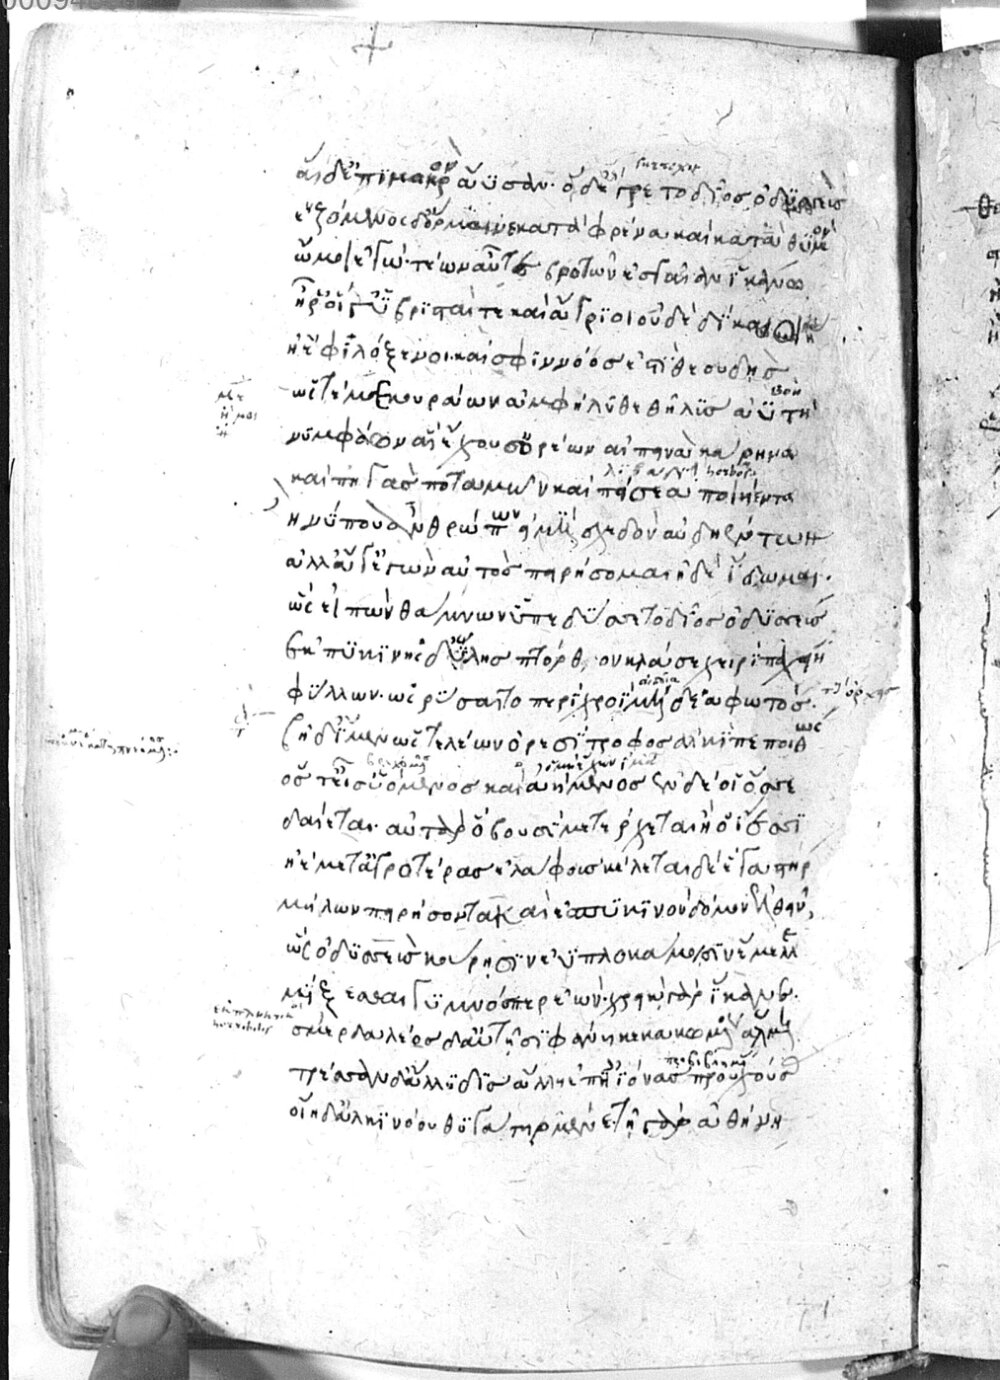 αἱ δ' ἐπὶ μακρὸν ἄϋσαν· ὁ δ' ἔγρετο δῖος ὀδϋσσεὺς
ἑζόμενος δ' ὥρμαινε κατὰ φρένα καὶ κατὰ θυμὸν
ὤ μοι ἐγὼ· τέων αὖτε βροτῶν ἐς γαῖαν ἱκάνω
ἦ ῥ' οἵ γ' ὑβρισταί τε καὶ ἄγριοι οὐδὲ δίκαιοι
ἠὲ φιλόξενοι· καί σφιν νόος ἐστὶ θεουδὴς
ὥς τέ με κουράων ἀμφήλυθε θῆλϋς ἀϋτὴ
νϋμφάων αἳ ἔχουσ' ὀρέων αἰπεινὰ κάρηνα
καὶ πηγὰς ποταμῶν καὶ πίσεα ποιήεντα
ἦ νύ που ἀνθρώπων εἰμὶ σχεδὸν αὐδηέντων
ἀλλ' ἄγ' ἐγὼν αὐτὸς πειρήσομαι ἠδὲ ἴδωμαι·
ὣς εἰπὼν θάμνων ὑπεδύσετο δῖος ὀδϋσσεὺς
ἐκ πυκινῆς δ' ὕλης πτόρθον κλάσε χειρὶ παχείῃ
φύλλων· ὡς ῥύσαιτο περὶ χροῒ μήδεα φωτὸς·
βῆ δ' ἴμεν ὥστε λέων ὀρεσίτροφος ἀλκὶ πεποιθὼς
ὅς τ' εἶσ' ὑόμενος καὶ ἀήμενος ἐν δέ οἱ ὄσσε
δαίεται· αὐτὰρ ὁ βουσὶ μετέρχεται ἢ ὀΐεσσι
ἠὲ μετ' ἀγροτέρας ἐλάφους κέλεται δέ ἑ γαστὴρ
μήλων πειρήσοντα καὶ ἐς πϋκινὸν δόμον ἐλθεῖν,
ὣς ὀδϋσσεὺς κούρῃσιν ἐϋπλοκάμοισιν ἔμελλε
μίξεσθαι γϋμνός περ ἐών· χρειὼ γὰρ ἵκανε·
σμερδαλέος δ' αὐτῇσι φάνη κεκακωμένος ἅλμῃ
τρέσσαν δ' ἄλλϋδις ἄλλη ἐπ' ἠϊόνας προὐχούσας
οἴη δ' ἀλκινόου θϋγάτηρ μένε· τῇ γὰρ ἀθήνη